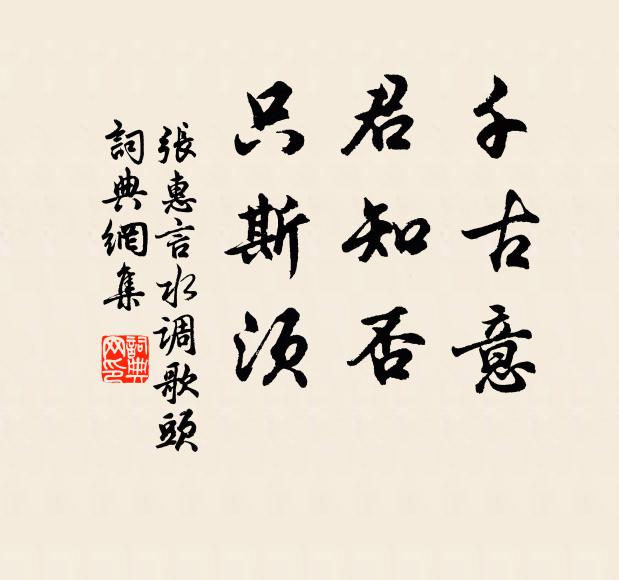 千古意
君知否
只斯須
張惠言水调歌頭
詞典網集
詞典網印